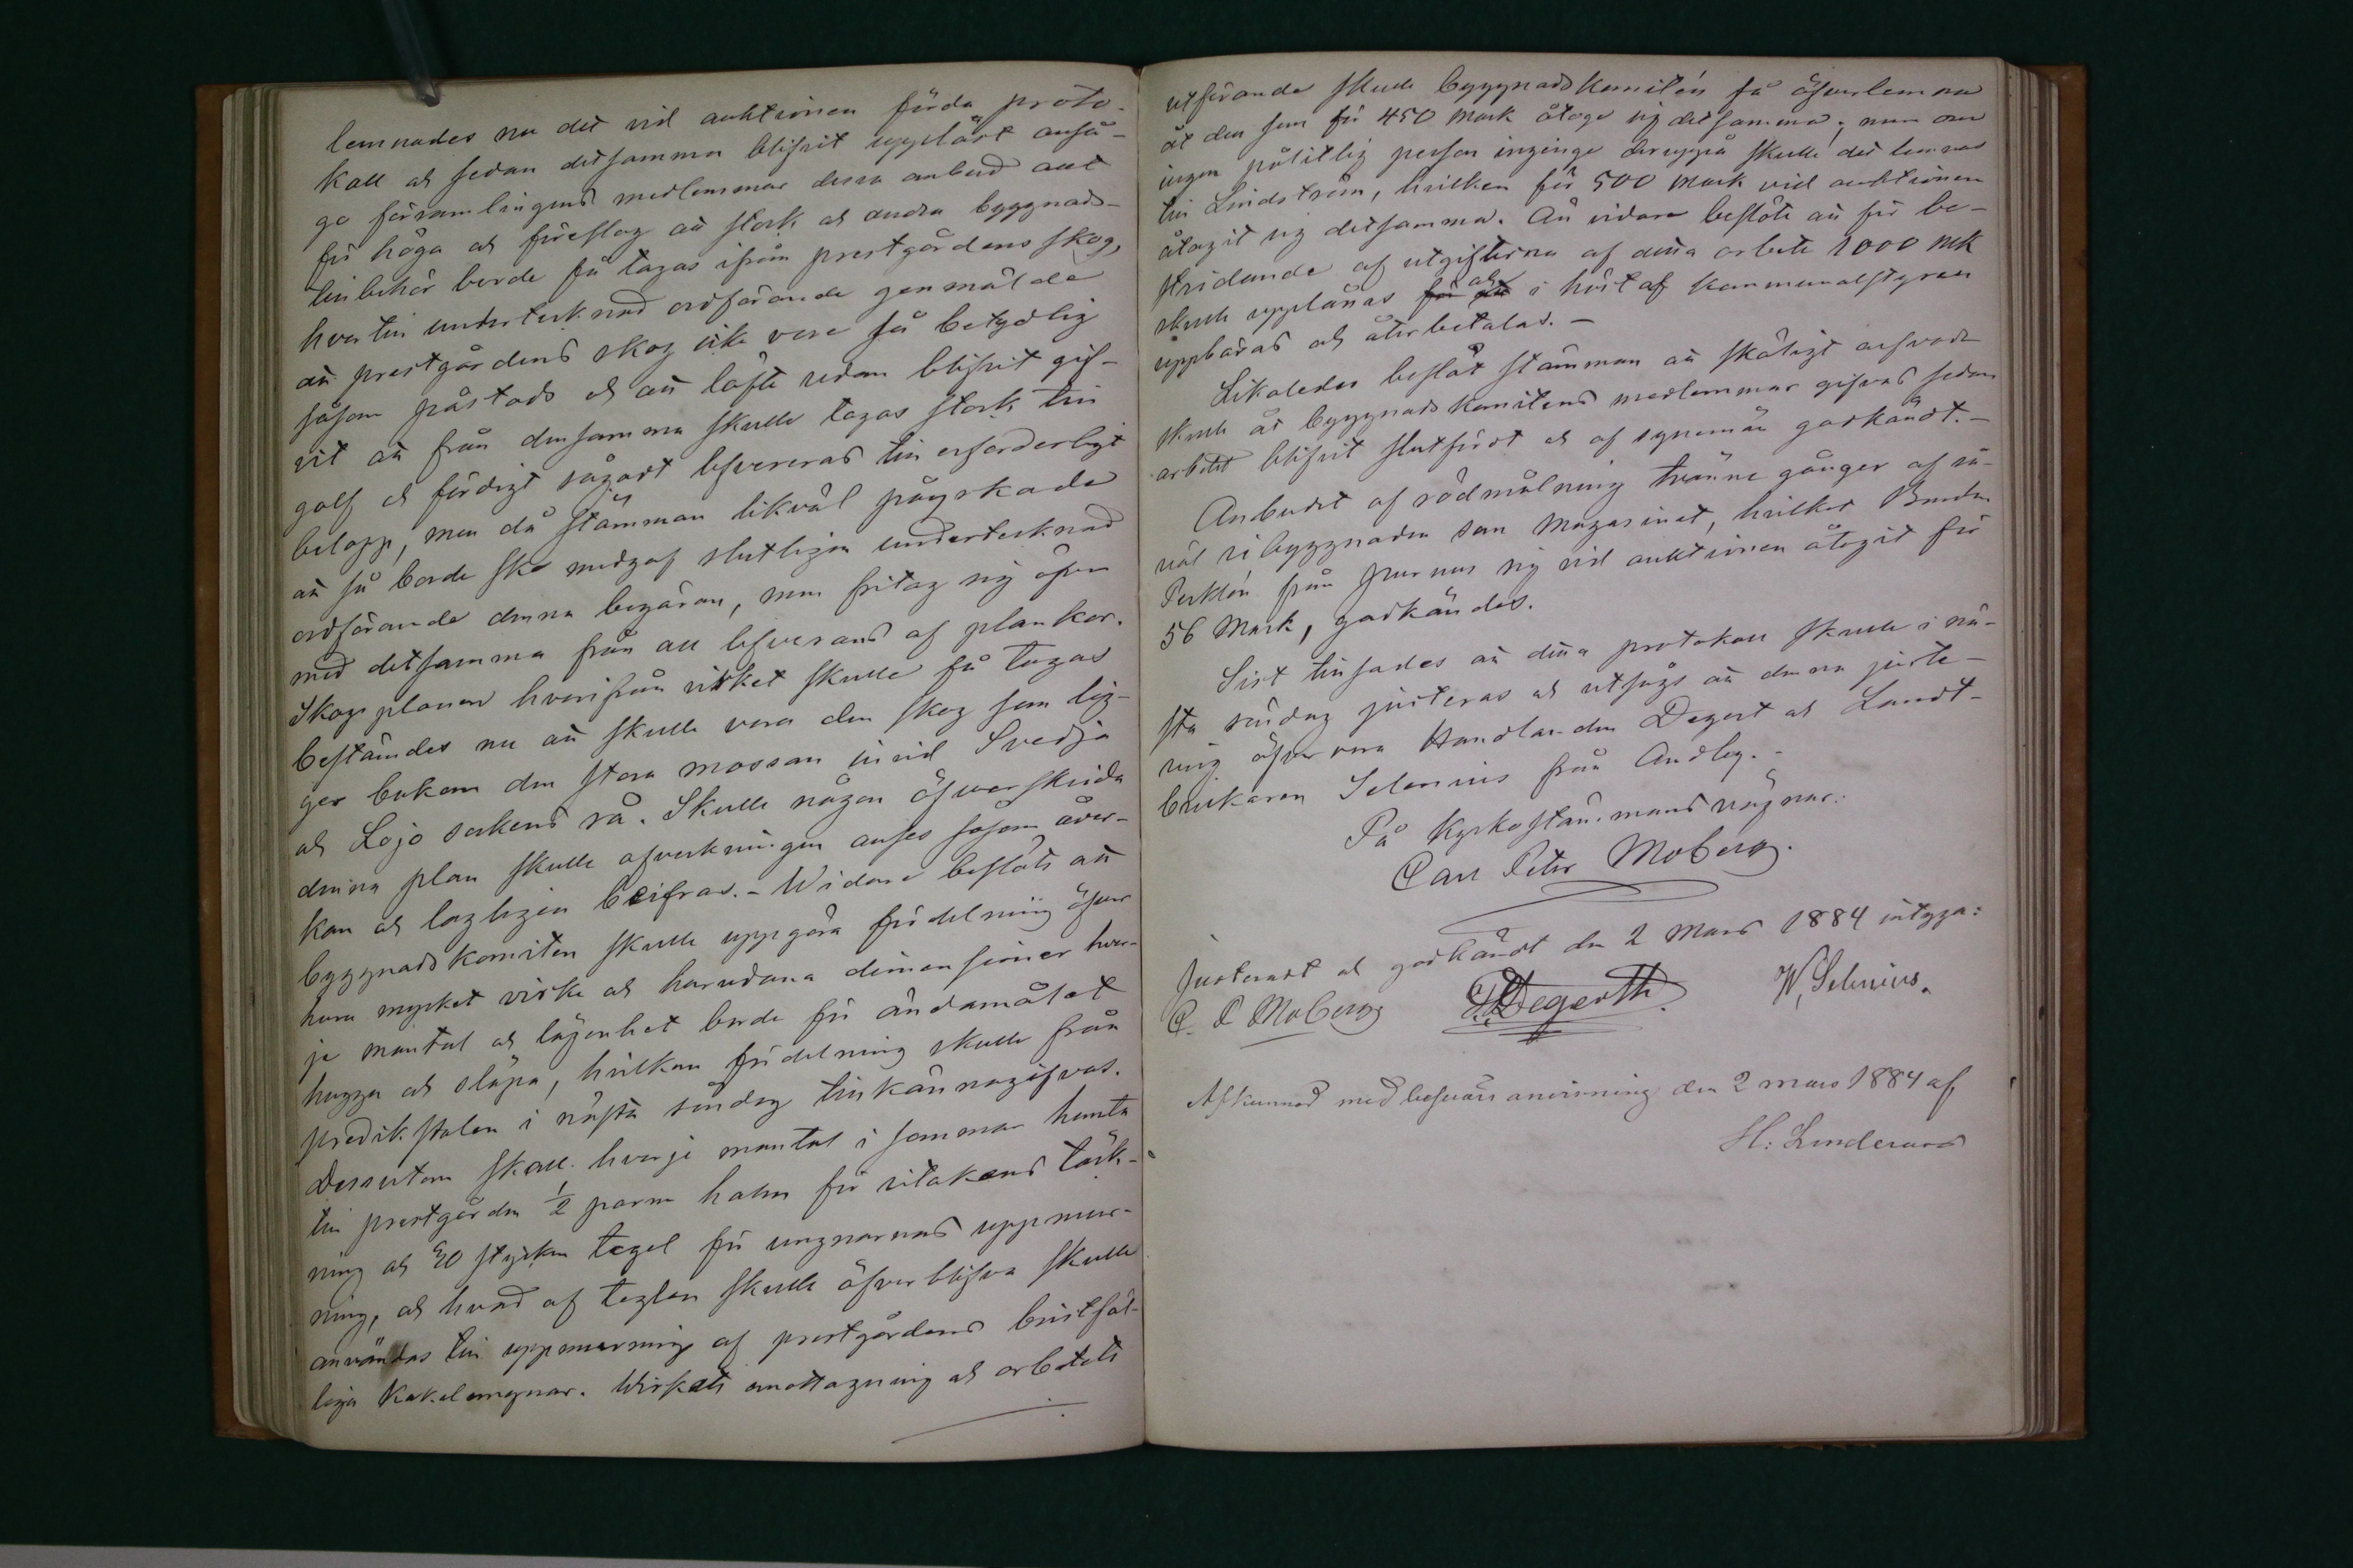 lemnades nu det vid auktionen förda proto-
koll och sedan detsamma blifvit uppläst anså-
go församlingens medlemmar dessa anbud allt
för höga och föreslog att stock och andra byggnads-
tillbehör borde få tagas ifrån prestgårdens skog,
hvartill undertecknad ordförande genmälde
att prestgårdens skog icke vore så betydlig
såsom påstods och att löfte redan blifvit gif-
vit att från densamma skulle tagas stock till
golf och färdigt sågadt lefvereras till erforderligt
belopp, men då stämman likväl påyrkade
att så borde ske medgaf slutligen undertecknad
ordförande denna begäran, men fritog sig äfven
med detsamma från all lefverans af plankor.
Skogsplanen hvarifrån virket skulle få tagas
bestämdes nu att skulle vara den skog som lig-
ger bakom den stora mossan invid Svedja
och Lojo sockens rå. Skulle någon öfverskrida
denna plan skulle afverkningen anses såsom åver-
kan och lagligen beifras. - Widare beslöts att
byggnadskomiten skulle uppgöra fördelning öfver
huru mycket virke och hurudana dimensioner hvar-
je mantal och lägenhet borde för ändamålet
hugga och släpa, hvilken fördelning skulle från
predikstolen i nästa söndag tillkännagifvas.
Dessutom skall hvarje mantal i sommar hemta
till prestgården 1/2 parm halm för ritakens täck-
ning och 40 stycken tegel för ungnarnas uppmur-
ning, och hvad af teglen skulle öfverblifva skulle
användas till uppmurning af prestgårdens bristfäl-
liga kakelungnar. Wirkets emottagning och arbetets
utförande skulle byggnadskomitén få öfverlemna
åt den som för 450 mark åtoge sig detsamma; men om
ingen pålitlig person inginge deruppå skulle det lemnas
till Lindström, hvilken för 500 mark vid auktionen
åtagit sig detsamma. Än vidare beslöts att för be-
stridande af utgifterna af detta arbete 1000 mk
skulle upplånas och i höst af kommunalstyrelsen
uppbäras och återbetalas. -
Likaledes beslöt stämman att skäligt arfvode
skulle åt byggnadskomitens medlemmar gifvas sedan
arbetet blifvit slutfördt och af synemän godkändt. -
Anbudet af rödmålning tvänne gånger af så-
väl ribyggnaden som magasinet, hvilket Bonden
från Purnus sig vid auktionen åtagit för
56 mark, godkändes.
Sist tillsades att detta protokoll skulle i nä-
sta söndag justeras och utsågs att denna juste-
ring öfvervara Handlanden Degert och Landt-
brukaren Selenius från Andby. -
På kyrkostämmans vägnar:
Carl Peter Moberg.
Justeradt och godkändt den 2 Mars 1884 intyga:
C. P. Moberg Degerth W. Selenius.
Afkunnad med besvärs anvisning den 2 mars 1884 af